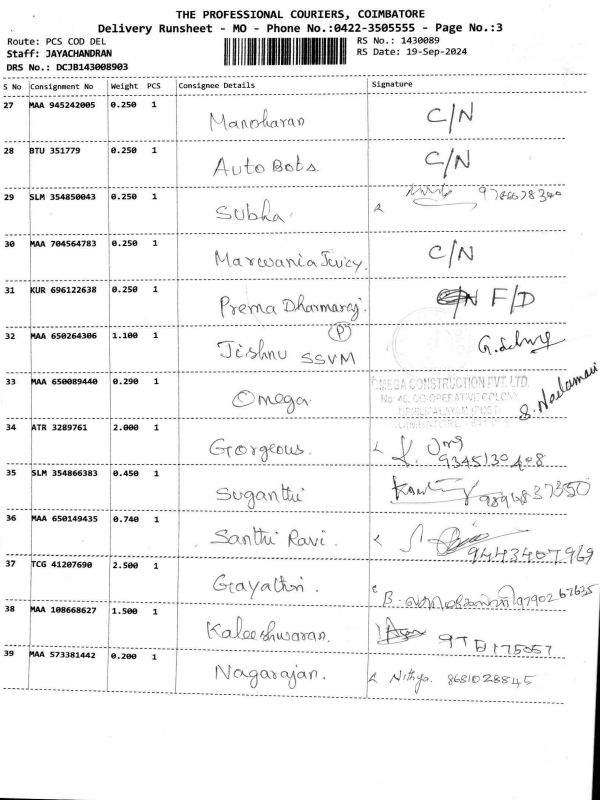 THE PROFESSIONAL COURIERS, COIMBATORE
Delivery Runsheet - MO - Phone No.:0422-3505555 - Page No.:3
Route: PCS COD DEL RS No.: 1430089
Staff: JAYACHANDRAN RS Date: 19-Sep-2024
DRS No.: DCJB143008903
S No Consignment No Weight PCS Consignee Details Signature
27 MAA 945242005 0.250 1 Manoharan C/N
28 BTU 351779 0.250 1 AutoBots. C/N
29 SLM 354850043 0.250 1 Subha.
30 MAA 704564783 0.250 1 C/N
31 KUR 696122638 0.250 1 Prema Dharmaraj. F/D
32 MAA 650264306 1.100 1 Jishnu SSVM (P)
33 MAA 650089440 0.290 1 Omega.
OMEGA CONSTRUCTION PVT. LTD.
No: 46, CO-OPERATIVE COLONY
34 ATR 3289761 2.000 1 Gorgeous.
35 SLM 354866383 0.450 1 Suganthi 9894837350
36 MAA 650149435 0.740 1 Santhi Ravi. 9443407969
37 TCG 41207690 2.500 1 Gayathri. B. 9790267635
38 MAA 108668627 1.500 1 Kaleeshwaran.
39 MAA 573381442 0.200 1 Nagarajan. Nithya. 8681028845